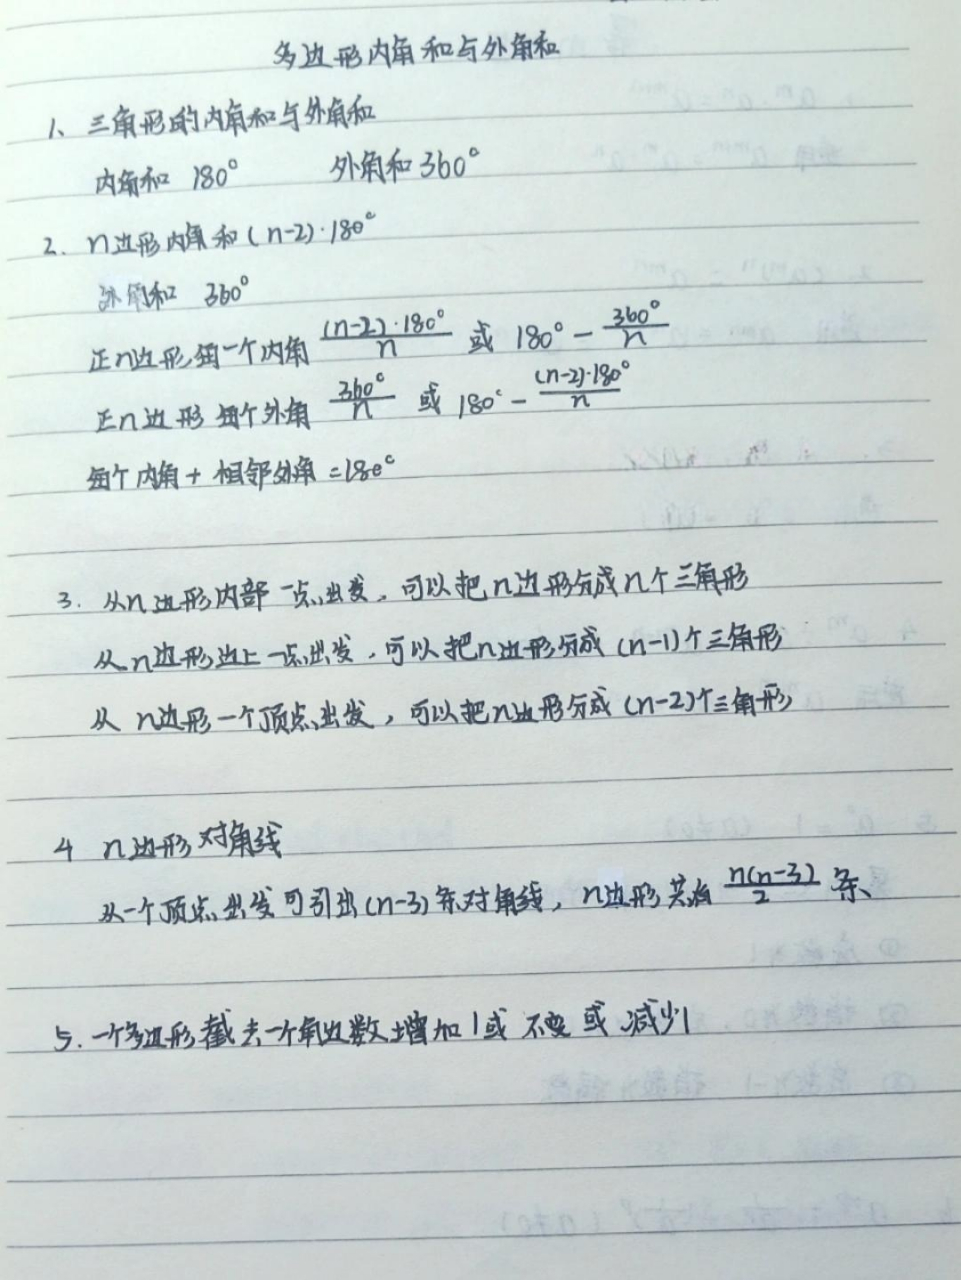 多边形内角和与外角和
1、三角形的内角和与外角和
内角和 180° 外角和 360°
2. n边形内角和(n-2)·180°
外角和 360°
正n边形每一个内角 (n-2)·180°/n 或 180° - 360°/n
正n边形每个外角 360°/n 或 180° - (n-2)·180°/n
每个内角+相邻外角=180°
3. 从n边形内部一点出发,可以把n边形分成n个三角形
从n边形边上一点出发,可以把n边形分成(n-1)个三角形
从n边形一个顶点出发,可以把n边形分成(n-2)个三角形
4 n边形对角线
从一个顶点出发可引出(n-3)条对角线,n边形共有 n(n-3)/2 条
5. 一个多边形截去一个角边数增加1或不变或减少1